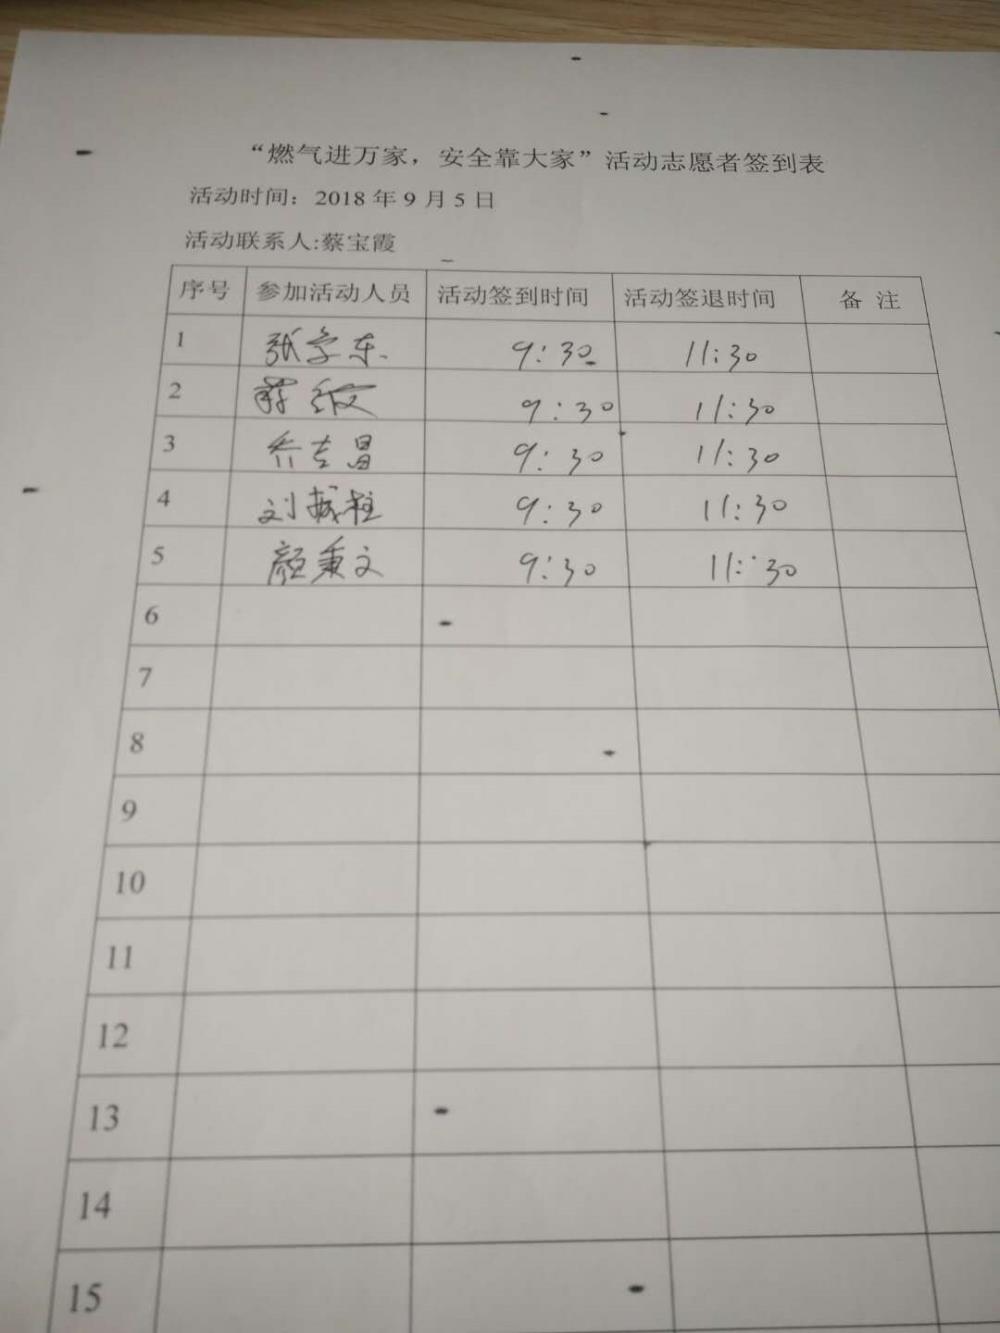 “燃气进万家，安全靠大家”活动志愿者签到表
活动时间：2018 年 9 月 5 日
活动联系人:蔡宝霞
序号 参加活动人员 活动签到时间 活动签退时间 备 注
1 张学东 9:30 11:30
2 9:30 11:30
3 乔志昌 9:30 11:30
4 刘 9:30 11:30
5 颜秉文 9:30 11:30
6
7
8
9
10
11
12
13
14
15